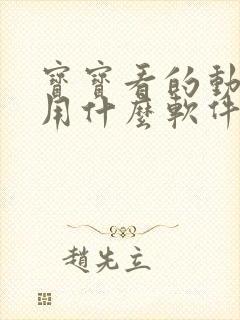 寶寶看的動
用什麼軟件
趙先立